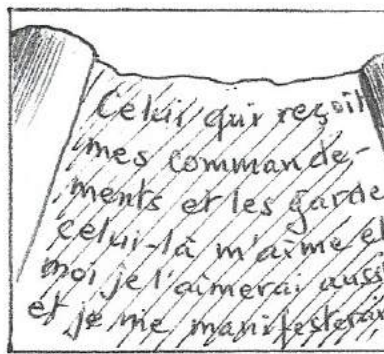 Celui qui reçoit
mes commande-
ments et les garde
celui-là m'aime et
moi je l'aimerai aussi
et je me manifesterai